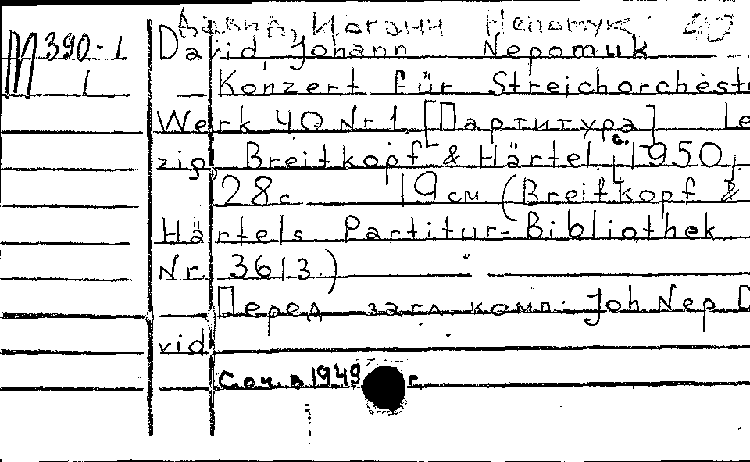 Давид, Иоганн Непомук 40
М 390-1 David, Johann Nepomuk
1 Konzert für Streichorcheste
Werk 40 Nr 1 [Партитура] Le
zig, Breitkopf & Härtel, с. 1950,
28 с. 19 см (Breitkopf &
Härtels Partitur-Bibliothek
Nr. 3613.)
Перед загл. комп.: Joh Nep D
vid
Соч. в 1949 г.